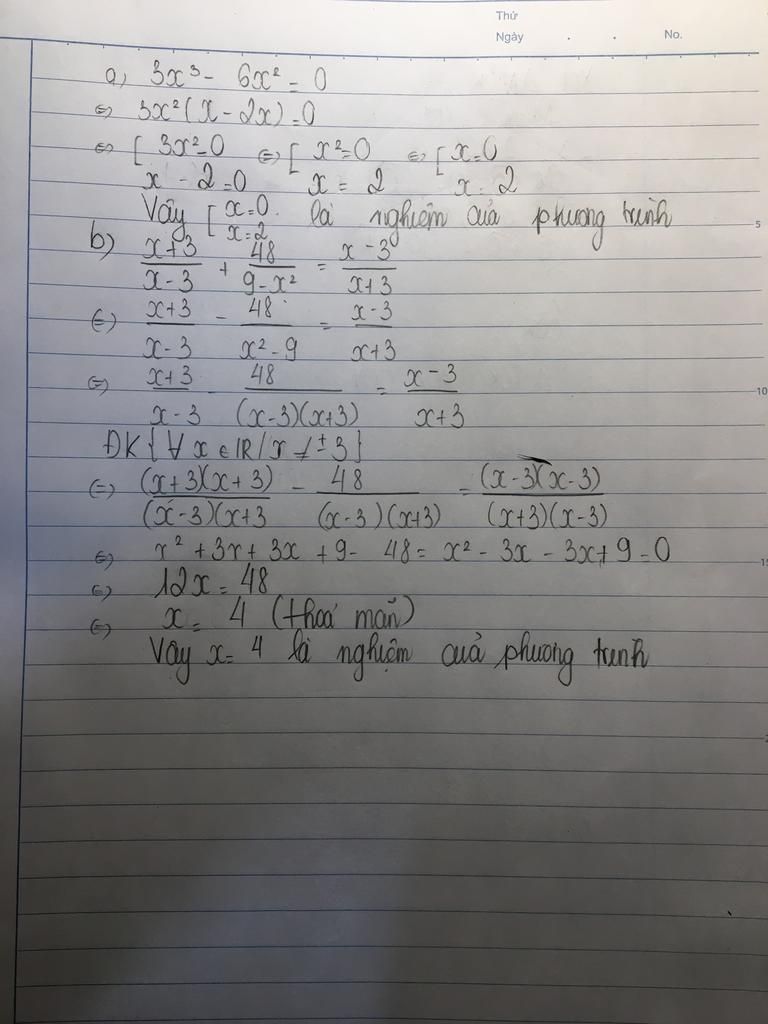 Thứ
Ngày . . No.
a) 3x³ - 6x² = 0
⇔ 3x²(x - 2x) = 0
⇔ [ 3x² = 0 ⇔ [ x² = 0 ⇔ [ x = 0
x - 2 = 0 x = 2 x = 2
Vậy [ x = 0 là nghiệm của phương trình
x = 2
5
b) x+3 / x-3 + 48 / 9-x² = x-3 / x+3
⇔ x+3 / x-3 - 48 / x²-9 = x-3 / x+3
⇔ x+3 / x-3 - 48 / (x-3)(x+3) = x-3 / x+3
10
ĐK { ∀ x ∈ IR / x ≠ ± 3 }
⇔ (x+3)(x+3) / (x-3)(x+3 - 48 / (x-3)(x+3) = (x-3)(x-3) / (x+3)(x-3)
⇔ x² + 3x + 3x + 9 - 48 = x² - 3x - 3x + 9 = 0
⇔ 12x = 48
⇔ x = 4 (thoả mãn)
Vậy x = 4 là nghiệm của phương trình